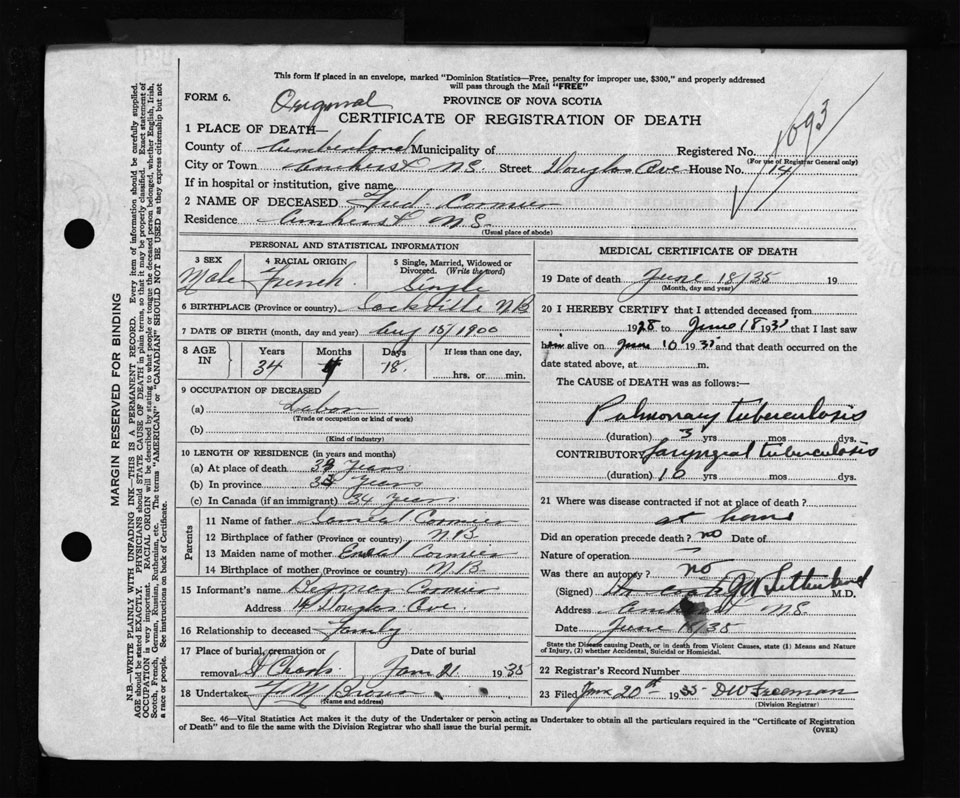 This form if placed in an envelope, marked "Dominion Statistics—Free, penalty for improper use, $300," and properly addressed
will pass through the Mail "FREE"
FORM 6. Original PROVINCE OF NOVA SCOTIA
CERTIFICATE OF REGISTRATION OF DEATH
1093
1 PLACE OF DEATH—
County of Cumberland Municipality of Registered No.
(For use of Registrar General only)
City or Town Amherst N.S. Street Douglas Ave House No. 14
If in hospital or institution, give name
2 NAME OF DECEASED Fred Cormier
Residence Amherst N.S.
(Usual place of abode)
PERSONAL AND STATISTICAL INFORMATION
3 SEX 4 RACIAL ORIGIN 5 Single, Married, Widowed or
Divorced. (Write the word)
Male French Single
6 BIRTHPLACE (Province or country) Sackville N.B
7 DATE OF BIRTH (month, day and year) Aug 10/1900
8 AGE IN Years Months Days If less than one day,
34 18. hrs. or min.
9 OCCUPATION OF DECEASED
(a) Labor
(Trade or occupation or kind of work)
(b)
(Kind of industry)
10 LENGTH OF RESIDENCE (in years and months)
(a) At place of death Years
(b) In province Years
(c) In Canada (if an immigrant) 34 Years
Parents
11 Name of father Cormier
12 Birthplace of father (Province or country) N.B
13 Maiden name of mother Cormier
14 Birthplace of mother (Province or country) N.B
15 Informant's name Cormier
Address 14 Douglas Ave.
16 Relationship to deceased Family
17 Place of burial, cremation or Date of burial
removal St Charles June 21 1935
18 Undertaker Brown
(Name and address)
MEDICAL CERTIFICATE OF DEATH
19 Date of death June 18/35 19
(Month, day and year)
20 I HEREBY CERTIFY that I attended deceased from
1928 to June 18 193 that I last saw
him alive on June 10 193 and that death occurred on the
date stated above, at m.
The CAUSE OF DEATH was as follows:—
Pulmonary tuberculosis
(duration) 3 yrs mos dys.
CONTRIBUTORY laryngeal tuberculosis
(duration) 10 yrs mos dys.
21 Where was disease contracted if not at place of death?
at home
Did an operation precede death? no Date of
Nature of operation —
Was there an autopsy? no
(Signed) Sutherland M.D.
Address Amherst N.S.
Date June 18/35
State the Disease causing Death, or in death from Violent Causes, state (1) Means and Nature
of Injury, (2) whether Accidental, Suicidal or Homicidal.
22 Registrar's Record Number
23 Filed June 20th 1935 D W Freeman
(Division Registrar)
Sec. 46—Vital Statistics Act makes it the duty of the Undertaker or person acting as Undertaker to obtain all the particulars required in the "Certificate of Registration
of Death" and to file the same with the Division Registrar who shall issue the burial permit.
(OVER)
MARGIN RESERVED FOR BINDING
N.B.—WRITE PLAINLY WITH UNFADING INK—THIS IS A PERMANENT RECORD. Every item of information should be carefully supplied.
AGE should be stated EXACTLY. PHYSICIANS should STATE CAUSE OF DEATH in plain terms, so that it may be properly classified. Exact statement of
OCCUPATION is very important. RACIAL ORIGIN will be described by stating to what people or tongue the deceased person belonged, whether English, Irish,
Scotch, French, German, Russian, Ruthenian, etc. The terms "AMERICAN" or "CANADIAN" SHOULD NOT BE USED as they express citizenship but not
a race or people. See instructions on back of Certificate.